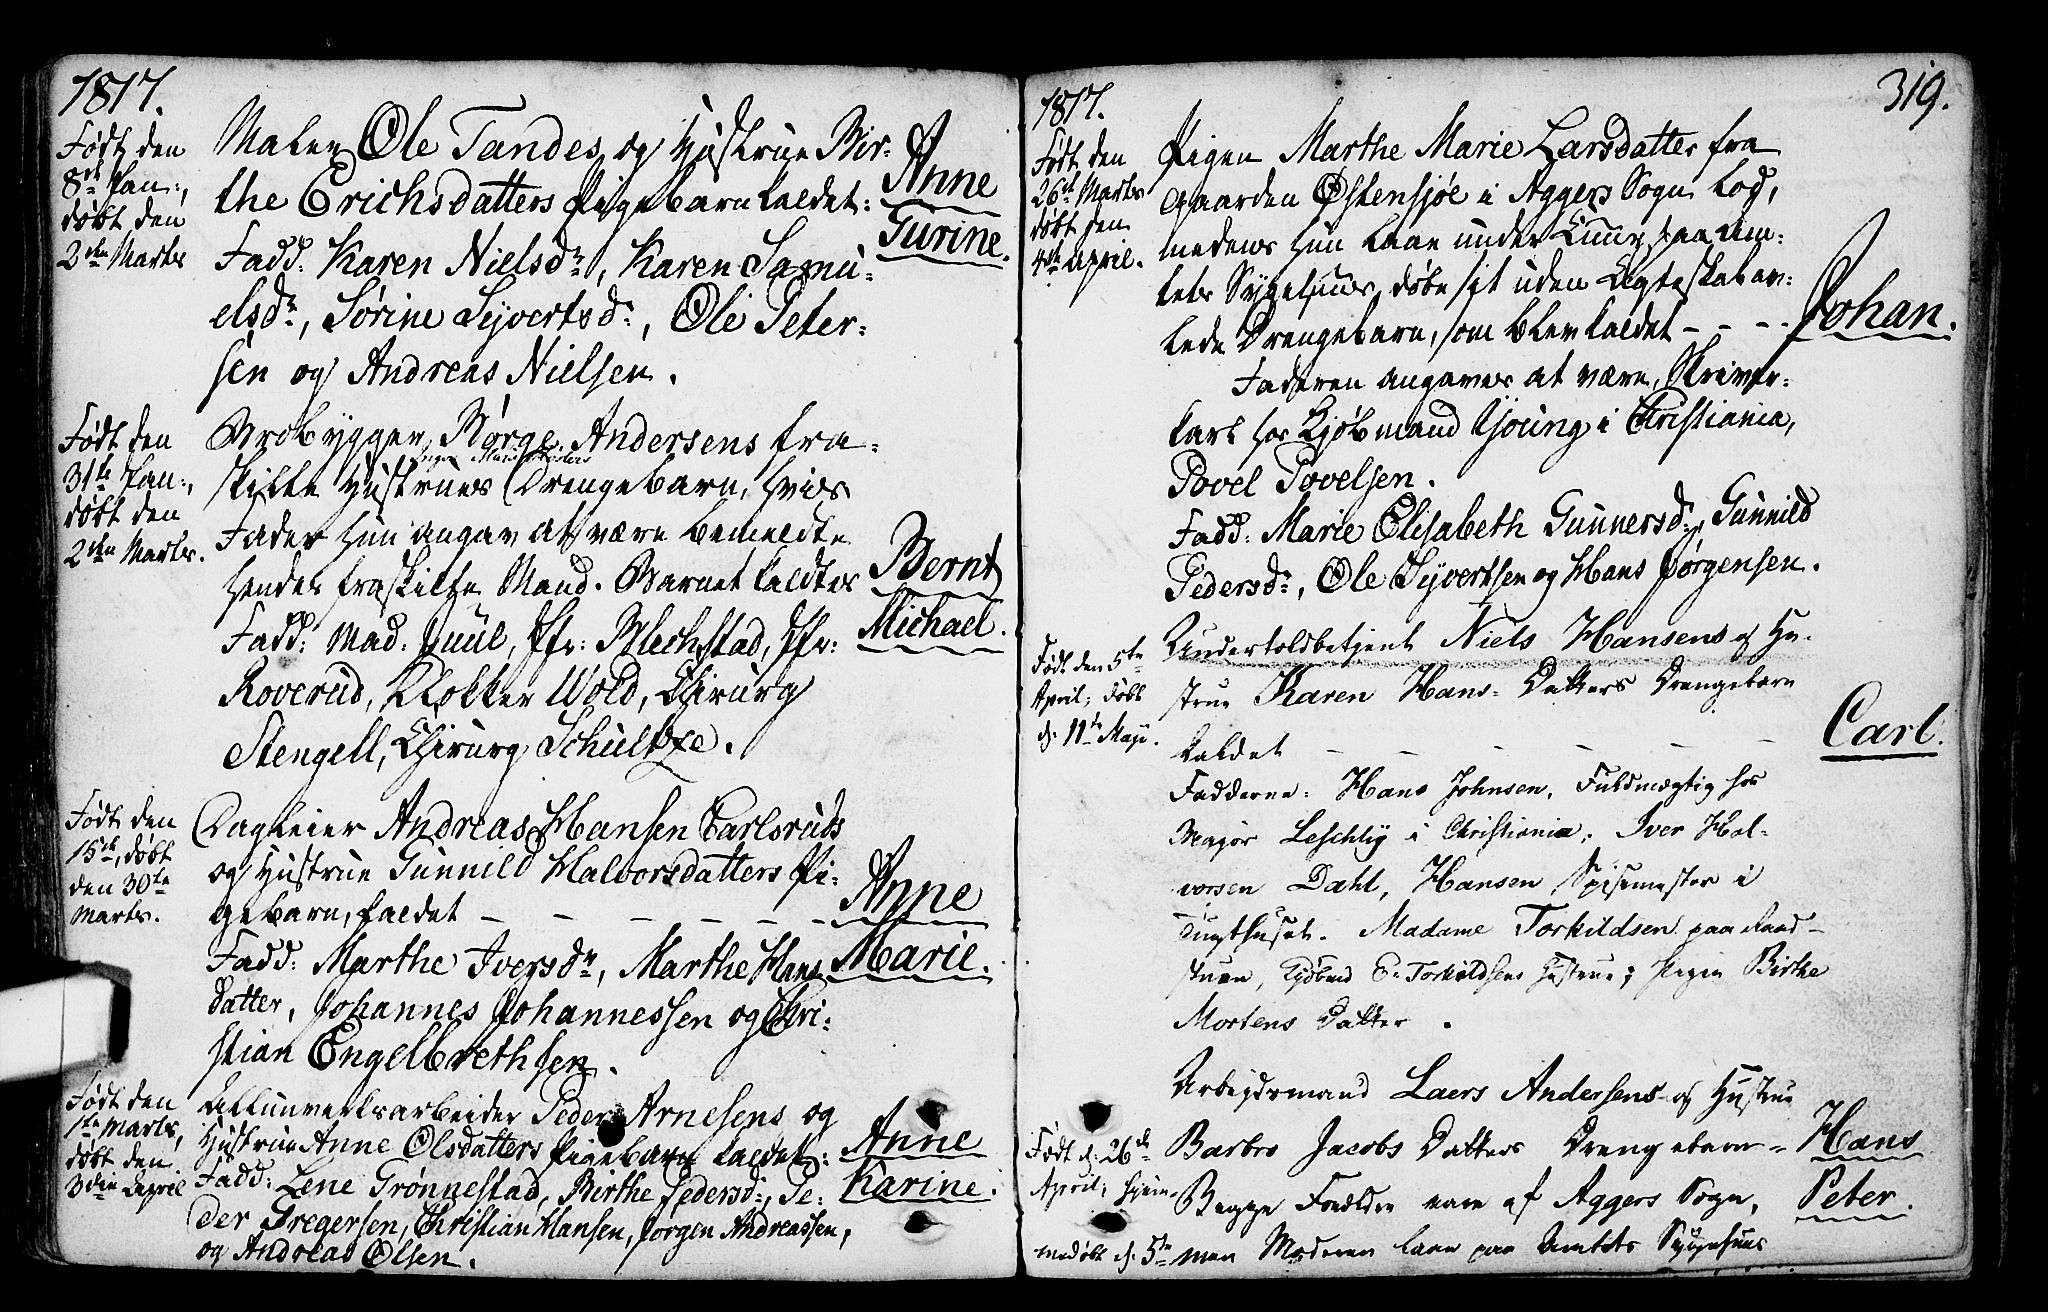 1817.
Født den
8de Jan:,
døbt den
2den Marts
Maler Ole Tandes og Hustrue Bir-
the Erichsdatters Pigebarn kaldet:
Anne
Turine.
Fadd: Karen Nielsdr, Karen Samu-
elsdr., Sørine Sivertsd:, Ole Peter-
sen og Andreas Nielsen.
Født den
31te Jan:,
døbt den
2den Marts.
Brobygger Børge Andersens fra-
skilte Hustrues Drengebarn, hvis
Fader hun angav at være bemeldte
hendes fraskilte Mand. Barnet kaldtes
Bernt
Michael.
Fadd: Mad. Juul, Jfr: Blechstad, Jfr:
Roverud, Klokker Wold, Chirurg
Stengell, Chirurg Schultze.
Født den
15de, døbt
den 30te
Marts.
Dagleier Andreas Hansen Carlsruds
og Hustrue Gunnild Halvorsdatters Pi-
gebarn, kaldet - - - - - -
Anne
Marie.
Fadd: Marthe Iversdr, Marthe Hans
datter, Johannes Johannessen og Chri-
stian Engelbrethsen.
Født den
1ste Marts,
døbt den
3die April
Allunverksarbeider Peder Arnesens og
Hustrue Anne Olsdatters Pigebarn kaldet:
Anne
Karine.
Fadd: Lene Grønnestad, Birthe Pedersd:, Pe-
der Gregersen, Christian Hansen, Jorgen Andreassen,
og Andreas Olsen.
319.
1817.
Født den
26de Marts
døbt den
4de April.
Pigen Marthe Marie Larsdatter fra
Gaarden Østensjøe i Aggers Sogn lod,
medens hun laae under Cuur paa Am-
tets Sygehuus, døbe sit uden Ægteskab av-
lede Drengebarn, som blev kaldet - - -
Johan.
Faderen angaves at være Skriver-
karl hos Kjøbmand Young i Christiania,
Povel Povelsen.
Fadd: Marie Elisabeth Gunnersd:, Gunnild
Pedersdr, Ole Sivertsen og Hans Jørgensen.
Født den 5te
April; døbt
d: 11te Maji.
Undertoldbetjent Niels Hansens og Hu-
strue Karen Hans-Datters Drengebarn
kaldet - - - - - -
Carl.
Fadderne: Hans Johnsen, Fuldmægtig hos
Major Leschly i Christiania; Iver Hal-
vorsen Dahl, Hansen Spisemester i
Tugthuset. Madame Torkildsen paa Raad-
stuen, E: Torkildsens Hustrue; Pigen Birthe
Mortens Datter.
Arbejdsmand Laers Andersens og Hustrue
Født d: 26de
April; hjem-
medøbt d: 5te
Barbro Jacobs Datters Drengebarn -
Hans
Peter.
Begge Forældre vare af Aggers Sogn,
men Moderen laae paa Amtets Sygehuus